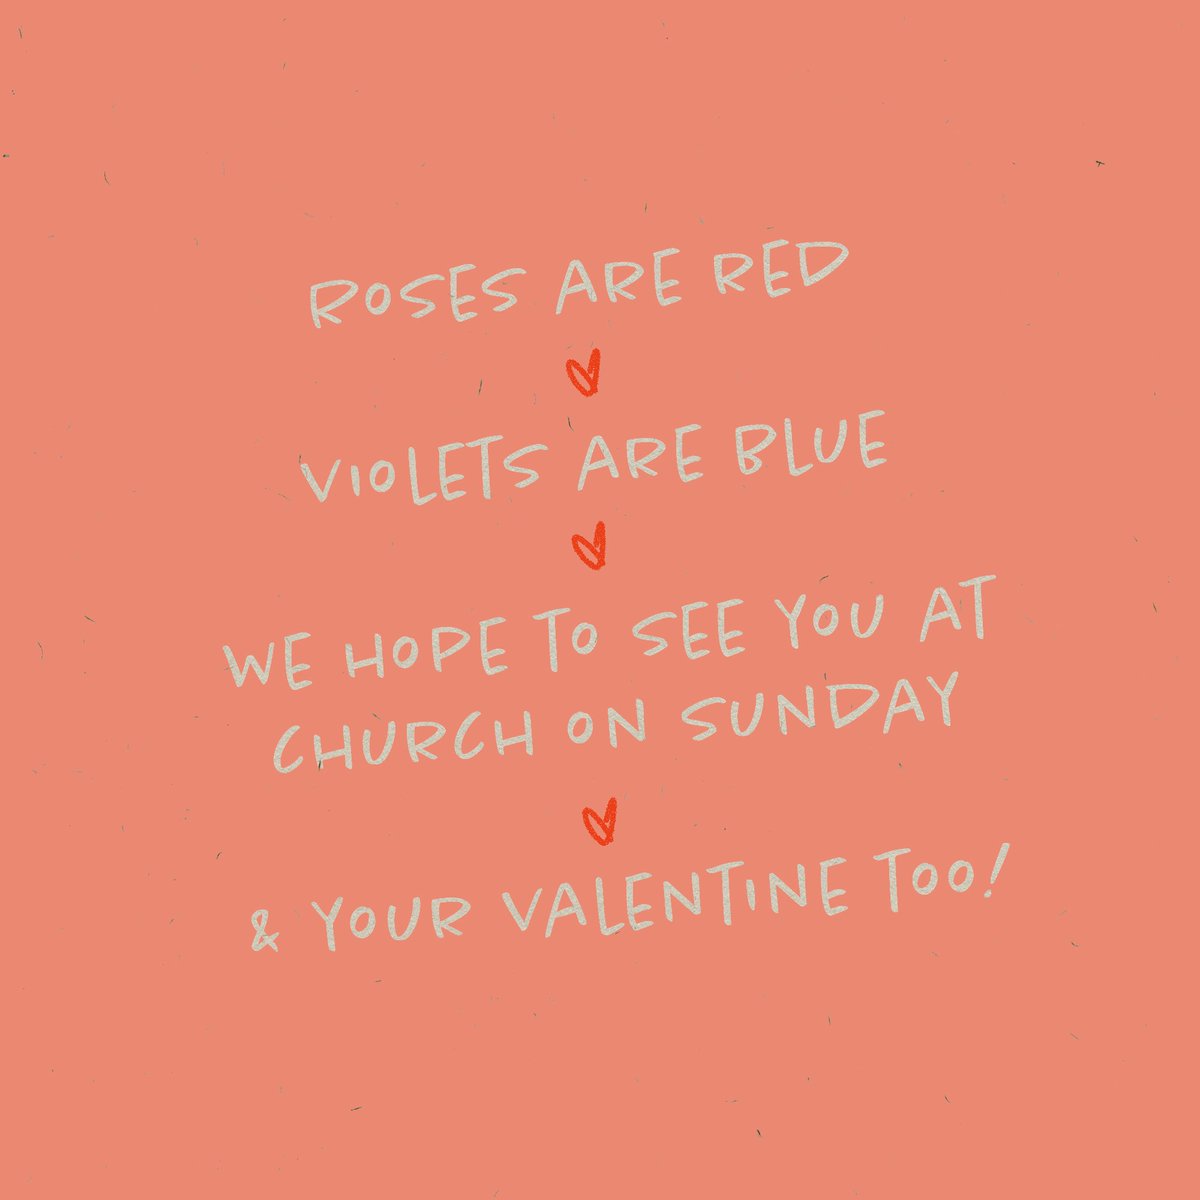 ROSES ARE RED
VIOLETS ARE BLUE
WE HOPE TO SEE YOU AT
CHURCH ON SUNDAY
& YOUR VALENTINE TOO!